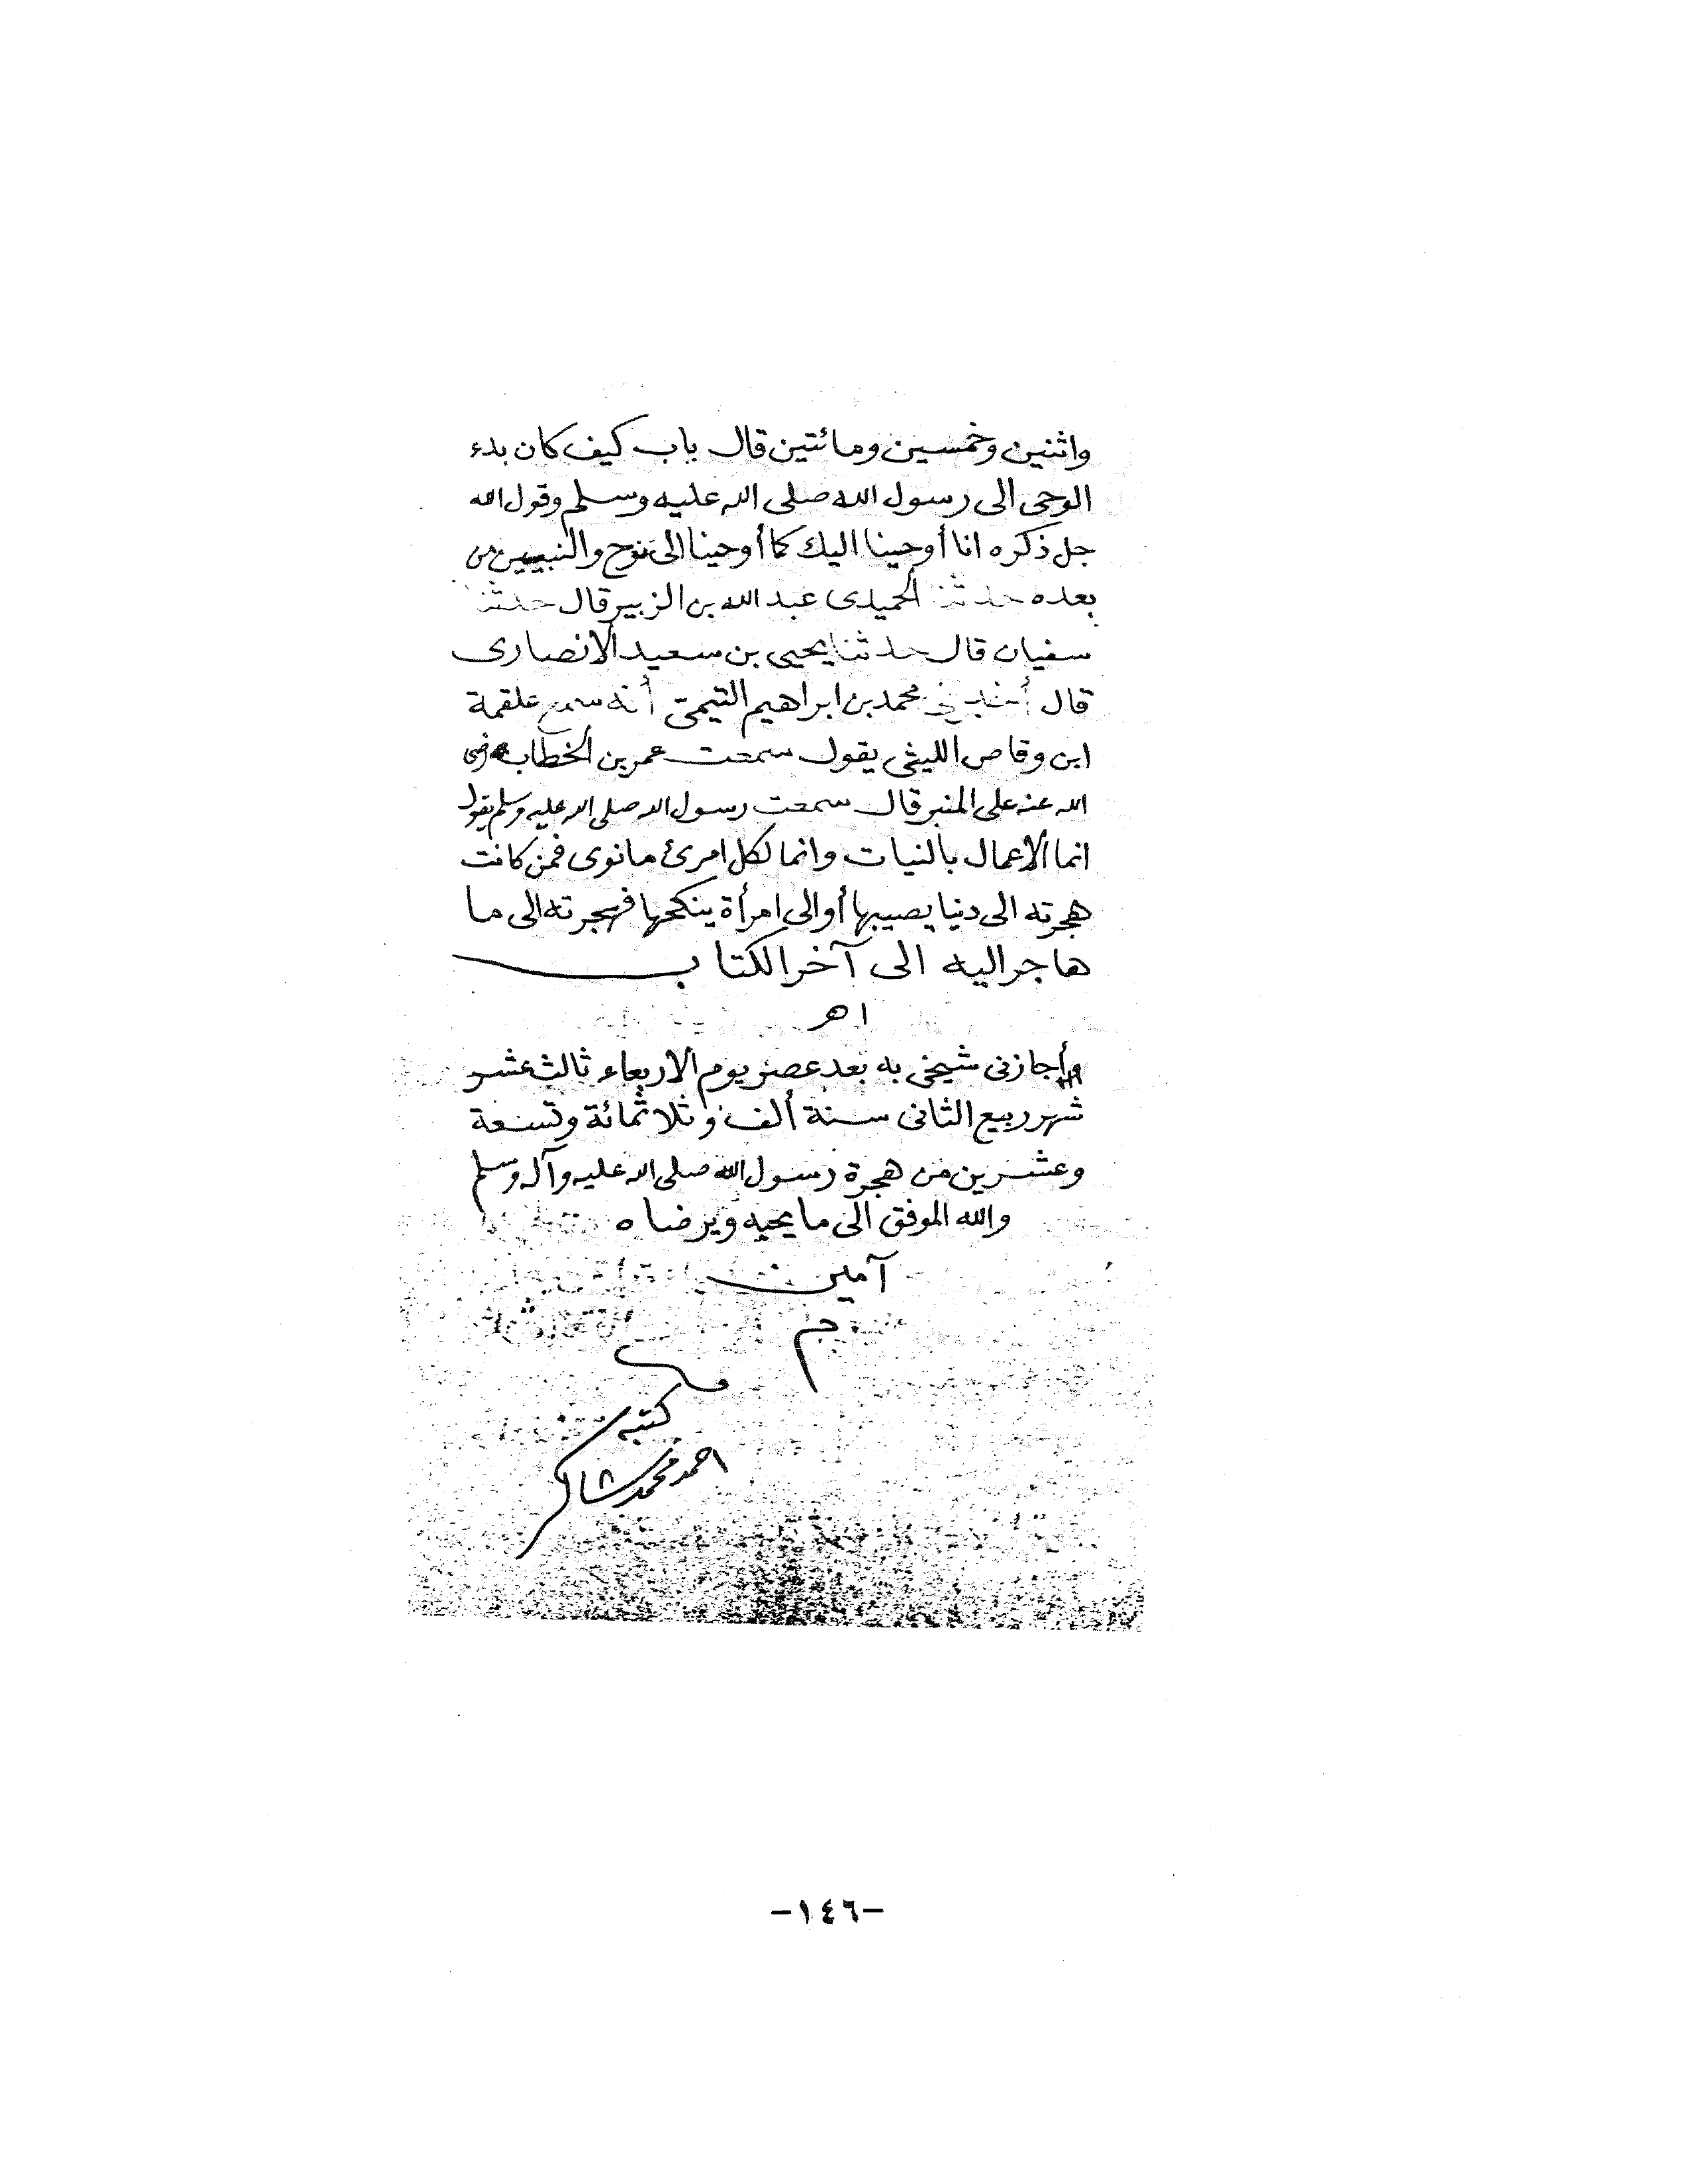 واثنين وخمسين ومائتين قال باب كيف كان بدء
الوحى الى رسول الله صلى الله عليه وسلم وقول الله
جل ذكره انا أوحينا اليك كما أوحينا الى نوح والنبيين من
بعده حدثنا الحميدى عبد الله بن الزبير قال حدثنا
سفيان قال حدثنا يحيى بن سعيد الانصارى
قال أخبرنى محمد بن ابراهيم التيمى أنه سمع علقمة
ابن وقاص الليثى يقول سمعت عمر بن الخطاب رضى
الله عنه على المنبر قال سمعت رسول الله صلى الله عليه وسلم يقول
انما الأعمال بالنيات وانما لكل امرئ ما نوى فمن كانت
هجرته الى دنيا يصيبها أو الى امرأة ينكحها فهجرته الى ما
هاجر اليه الى آخر الكتاب
ا هـ
وأجازنى شيخى به بعد عصر يوم الاربعاء ثالث عشر
شهر ربيع الثانى سنة ألف وثلاثمائة وتسعة
وعشرين من هجرة رسول الله صلى الله عليه وآله وسلم
والله الموفق الى ما يحبه ويرضاه
آمين
م
كتبه
احمد محمد شاكر
-١٤٦-